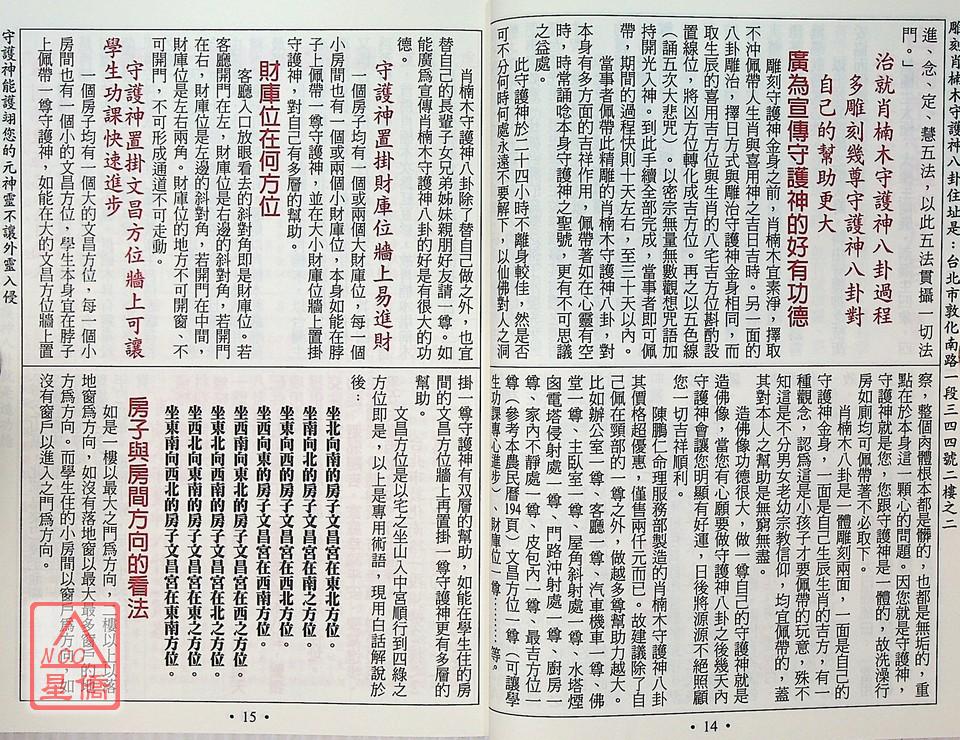 雕刻肖楠木守護神八卦住址是:台北市敦化南路一段三四四號二樓之二
進、念、定、慧五法,以此五法貫攝一切法
門。」
治就肖楠木守護神八卦過程
多雕刻幾尊守護神八卦對
自己的幫助更大
廣為宣傳守護神的好有功德
雕刻守護神金身之前,肖楠木宜素淨,擇取
不沖佩帶人生肖與喜用神之吉日吉時。另一面的
八卦雕治,擇日方式與雕治守護神金身相同,而
取生辰的喜用吉方位與生肖的八宅吉方位斟酌設
置線位,將凶方位轉化成吉方位。再之以五色線
(誦五次大悲咒)。以密宗無量無數觀想咒語加
持開光入神。到此手續全部完成,當事者即可佩
帶,期間的過程快則十天左右,至三十天以內。
當事者佩帶此精雕的肖楠木守護神八卦,對
本身有多方面的吉祥作用,佩帶著如在心靈有空
時,時常誦唸本身守護神之聖號,更有不可思議
之益處。
此守護神於二十四小時不離身較佳,然是否
可不分何時何處永遠不要解下,以仙佛對人之洞
察,整個肉體根本都是髒的,也都是無垢的,重
點在於本身這一顆心的問題。因您就是守護神,
守護神就是您,您跟守護神是一體的,故洗澡行
房如廁均可佩帶著不必取下。
肖楠木八卦是一體雕刻兩面,一面是自己的
守護神金身,一面是自己生辰生肖的吉方,有一
種觀念,認為這是小孩子才要佩帶的玩意,殊不
知這是不分男女老幼宗教信仰,均宜佩帶的,蓋
其對本人之幫助是無窮無盡。
造佛像功德很大,做一尊自己的守護神就是
造佛像,當您有心願要做守護神八卦之後幾天內
守護神會讓您明顯有好運,日後將源源不絕照顧
您一切吉祥順利。
陳鵬仁命理服務部製造的肖楠木守護神八卦
其價格超優惠,僅售兩仟元而已。故建議除了自
己佩在頸部的一尊之外,做越多尊幫助力越大。
比如辦公室一尊、客廳一尊、汽車機車一尊、佛
堂一尊、主臥室一尊、屋角斜射處一尊、水塔煙
囪電塔侵射處一尊、門路沖射處一尊、廚房一
尊、家內不靜處一尊、皮包內一尊、最吉方位一
尊(參考本農民曆194頁)文昌方位一尊(可讓學
生功課專心進步)、財庫位一尊………等。
• 14 •
肖楠木守護神八卦除了替自己做之外,也宜
替自己的長輩子女兄弟姊妹親朋好友請一尊。如
能廣為宣傳肖楠木守護神八卦的好是有很大的功
德。
守護神置掛財庫位牆上易進財
一個房子均有一個或兩個大財庫位,每一個
小房間也有一個或兩個小財庫位,本身如能在脖
子上佩帶一尊守護神,並在大小財庫位牆上置掛
守護神,對自己有多層的幫助。
財庫位在何方位
客廳入口放眼看去的斜對角即是財庫位。若
客廳門開在左,財庫位是右邊的斜對角,若開門
在右,財庫位是左邊的斜對角,若開門在中間,
財庫位是左右兩角。財庫位的地方不可開窗、不
可開門,不可形成通道不可走動。
守護神置掛文昌方位牆上可讓
學生功課快速進步
一個房子均有一個大的文昌方位,每一個小
房間也有一個小的文昌方位,學生本身宜在脖子
上佩帶一尊守護神,如能在大的文昌方位牆上置
掛一尊守護神有双層的幫助,如能在學生住的房
間的文昌方位牆上再置掛一尊守護神更有多層的
幫助。
文昌方位是以宅之坐山入中宮順行到四綠之
方位即是,以上是專用術語,現用白話解說於
後:
坐北向南的房子文昌宮在東北方位。
坐南向北的房子文昌宮在南之方位。
坐東向西的房子文昌宮在西北方位。
坐西向東的房子文昌宮在西南方位。
坐西南向東北的房子文昌宮在西之方位。
坐東北向西南的房子文昌宮在北之方位。
坐西北向東南的房子文昌宮在東之方位。
坐東南向西北的房子文昌宮在東南方位。
房子與房間方向的看法
如是一樓以最大之門為方向,二樓以上以落
地窗為方向,如沒有落地窗以最大最多窗戶的地
方為方向。而學生住的小房間以窗戶為方向,如
沒有窗戶以進入之門為方向。
守護神能護翊您的元神靈不讓外靈入侵
• 15 •
NCC
星僑